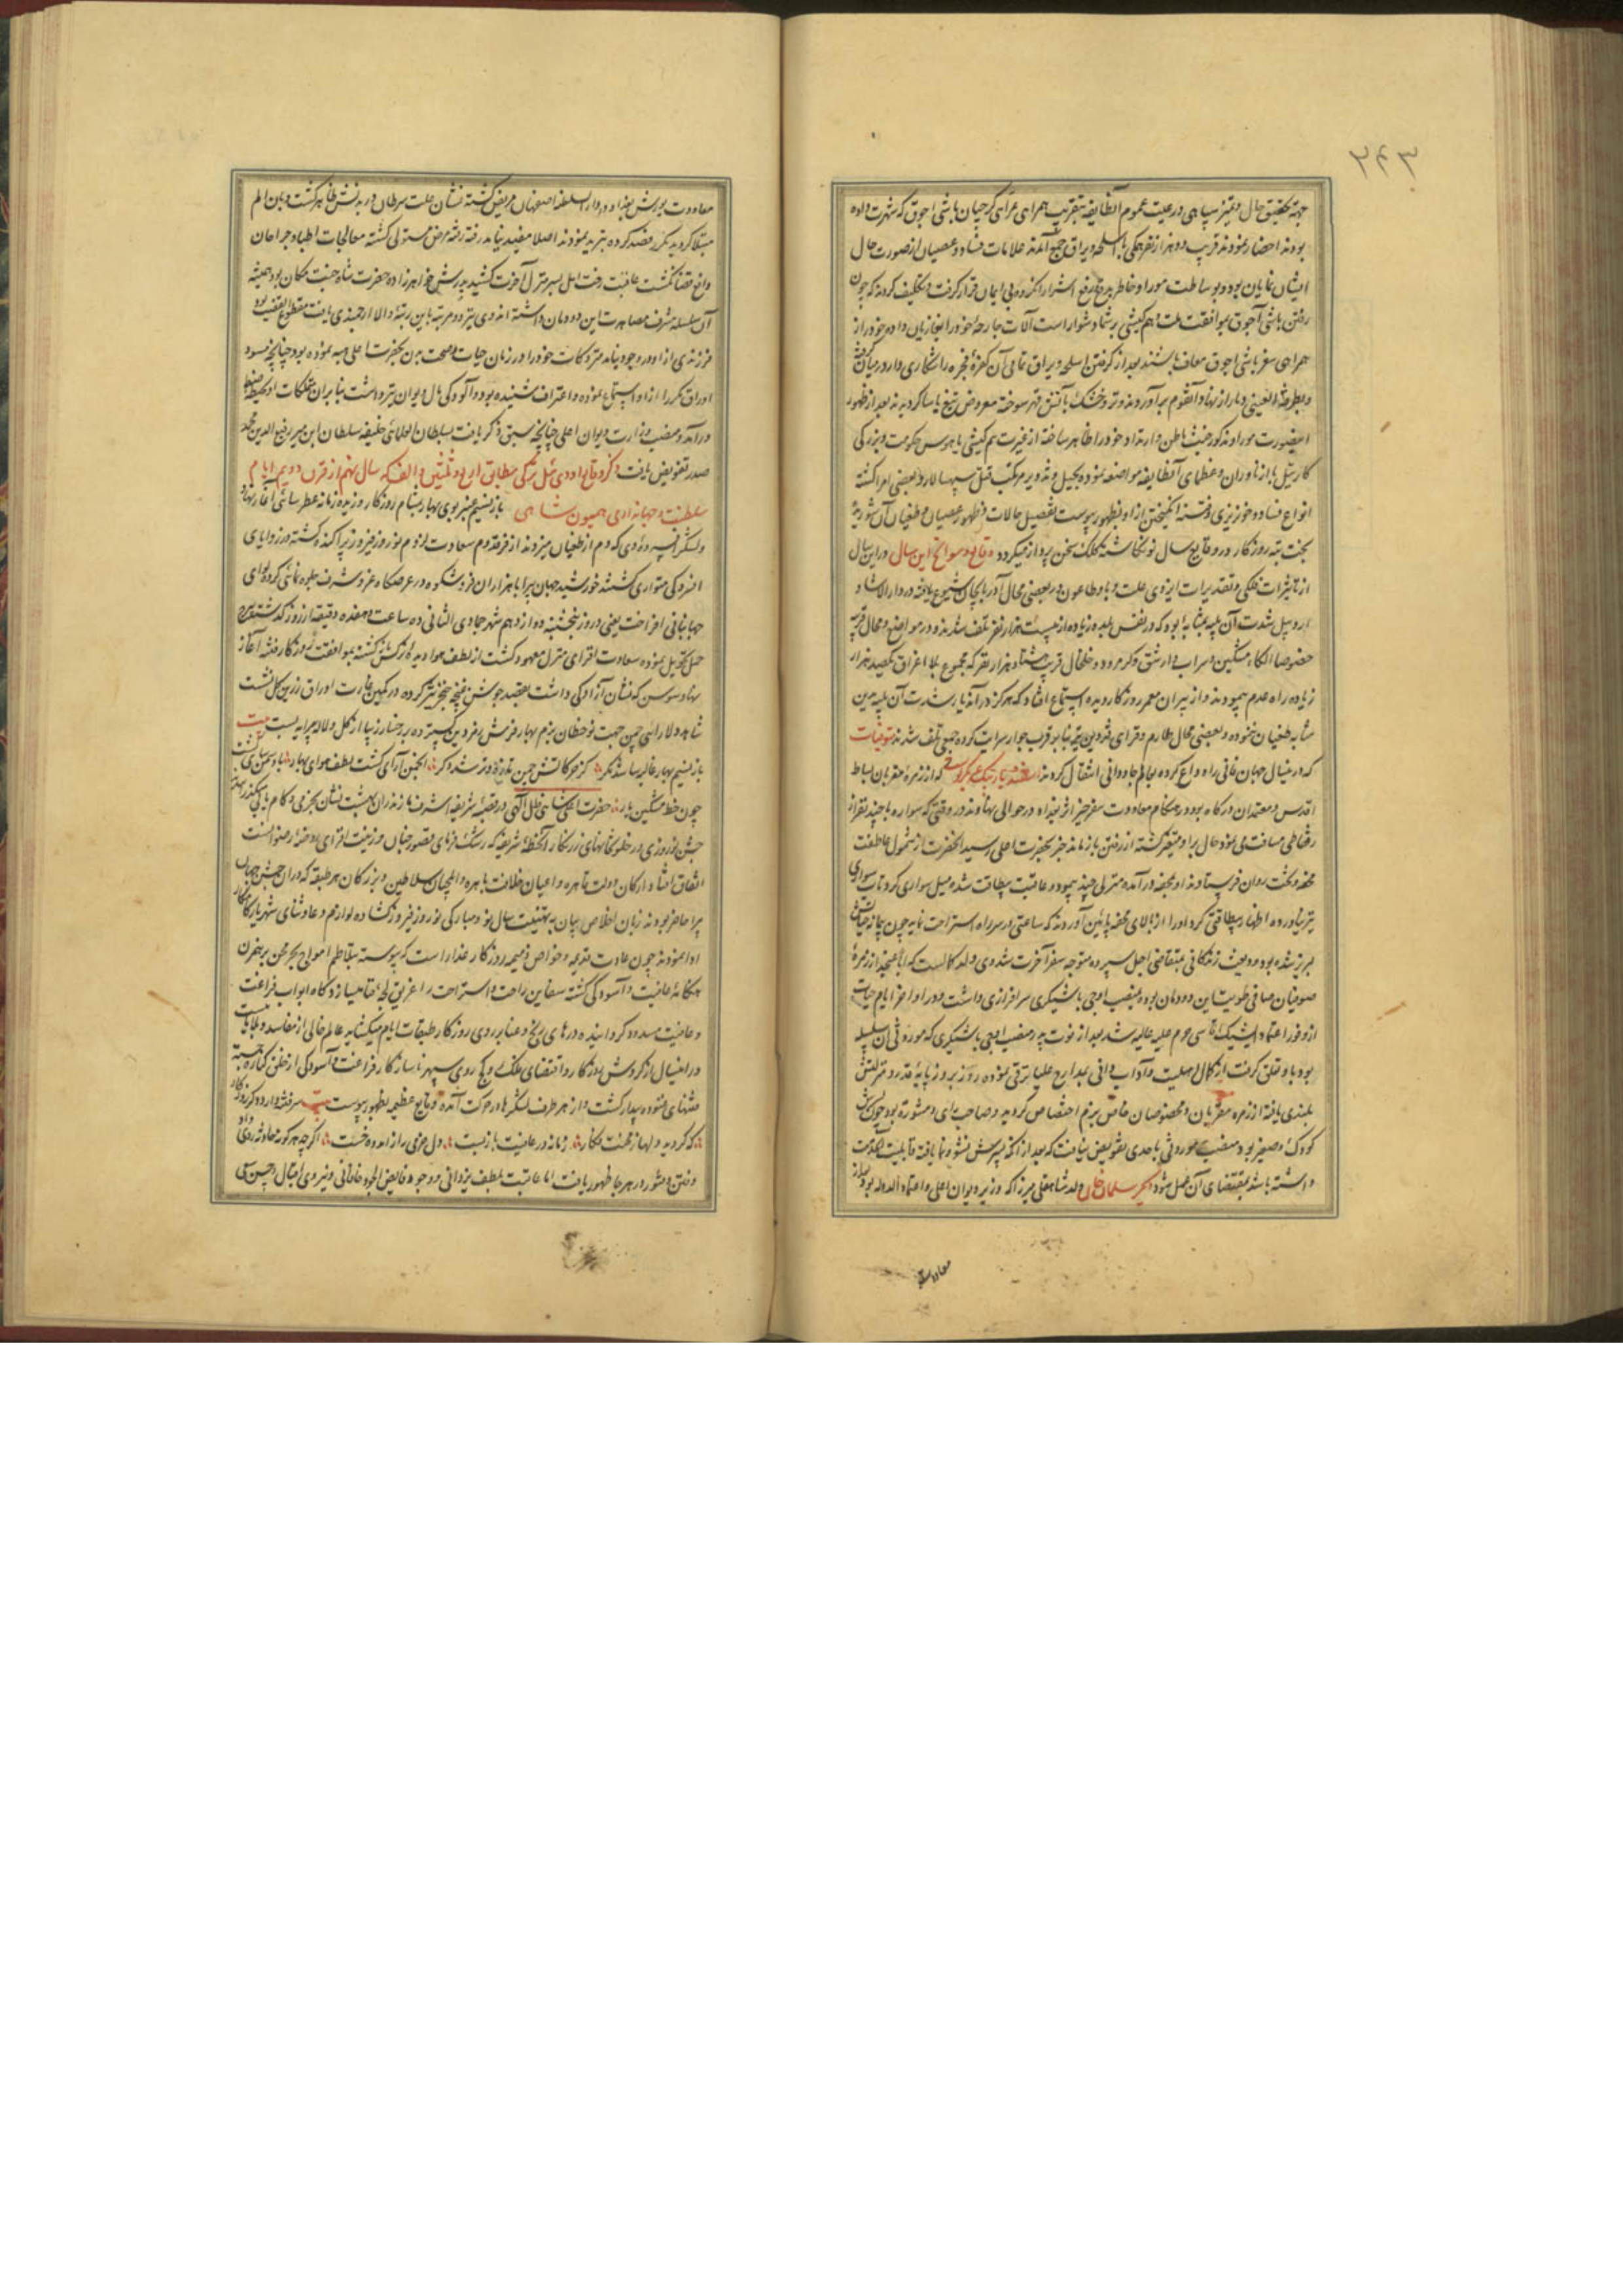 ۳۴۳
جهة تحقیق حال و تمیز سپاهی و رعیت عموم آنطایفه بتقریب همراهی
بودند احضار نمودند قریب دو هزار نفر همگی با اسلحه و یراق جمع آمدند علامات فساد و عصیان از صورت حال
ایشان نمایان بود و بوساطت موراو خاطر بر دفع و رفع اشرار قرار گرفت و تکلیف کردند که چون
رفتن باشی آچوق بموافقت ملت و هم کیشی بر شما دشوار است آلات جارحهٔ خود را بغازیان داده خود از
همراهی سفر باشی آچوق معاف باشند بعد از گرفتن اسلحه و یراق تمامی آن کفرهٔ فجره را شکاری وار در میان گرفته
و بطرفة العینی دمار از نهاد آنقوم برآوردند و تر و خشک بآتش قهر سوخته معروض تیغ یاسا گردیدند بعد از ظهور
اینصورت موراو مذکور خبث باطن و ارتداد خود را ظاهر ساخته از غیرت هم کیشی یا هوس حکومت و بزرگی
کارتیل با ازناوران و عظمای آنطایفه مواضعه نموده بحیل و تزویر مرتکب قتل سپهسالار و بعضی امرا گشته
انواع فساد و خونریزی و فتنه انگیختن از او بظهور پیوست تفصیل حالات و ظهور عصیان و طغیان آن شوریده
بخت تبه روزگار در وقایع سال نو نگاشتهٔ کلک سخن پرداز میگردد وقایع و سوانح این سال در این سال
از تاثیرات فلکی و تقدیرات ایزدی علت وبا و طاعون در بعضی محال آذربایجان شیوع یافته در دار الارشاد
اردبیل شدت آن بلیه بمثابهٔ بود که در نفس بلده زیاده از بیست هزار نفر تلف شدند و در مواضع و محال قریبه
خصوصا الکاء مشکین و سراب و ارشق و کرمرود و خلخال قریب هشتاد هزار نفر که مجموع بلا اغراق یکصد هزار
زیاده راه عدم پیمودند و از پیران معمر روزگار دیده استماع افتاد که هرگز در آن دیار شدت آن بلیه بدین
مثابه طغیان ننموده و بعضی محال طارم و قرای قزوین نیز بنا بر قرب جوار سرایت کرده جمعی تلف شدند متوفیات
که در اینسال جهان فانی را وداع کرده بعالم جاودانی انتقال کردند که از زمرهٔ مقربان بساط
اقدس و معتمدان درگاه بود در هنگام معاودت سفر خیر اثر بغداد در حوالی نهاوند در وقتی که سواره با چند نفر از
رفقا طی مسافت می نمود حال بر او متغیر گشته از رفتن باز ماند خبر بحضرت اعلی رسید آنحضرت از شمول عاطفت
محفه و تخت روان فرستادند او بمحفه درآمده منزلی چند پیمود و عاقبت بیطاقت شده میل سواری کرد تاب سواری
نیز نیاورده اظهار بیطاقتی کرد او را از بالای محفه پائین آوردند که ساعتی در سر راه استراحت نماید چون پیمانه حیاتش
لبریز شده بود ودیعت زندگانی بمتقاضی اجل سپرده متوجه سفر آخرت شد
صوفیان صافی طویت این دودمان بوده بمنصب باشیگری سرافرازی داشت و در اواخر ایام حیات
از وفور اعتماد ایشیک آقاسی حرم علیه عالیه شد بعد از فوت پدر منصب باشیگری که موروثی آن سلسله
بود باو تعلق گرفت از کمال اهلیت و آداب دانی بمدارج علیا ترقی نموده روز بروز پایهٔ قدر و منزلتش
بلندی یافته از زمره مقربان و مخصوصان خاص بزم اختصاص گردید و صاحب رای و مشوره بود چون پسرش
کودک و صغیر بود منصب موروثی باحدی تفویض نیافت که بعد از آنکه پسرش نشو و نما یافته قابلیت خدمت
داشته باشد بمقتضای آن عمل شود دیگر سلمان خان ولد شاهقلی میرزا که وزیر دیوان اعلی و اعتماد الدوله بود بعد از
معاودت
معاودت یورش بغداد در دار السلطنه اصفهان مریض گشته نشان علت سرطان در بدنش ظاهر گشت و بدین الم
مبتلا گردید مکرر فصد کرده تبرید نمودند اصلا مفید نیامد رفته رفته مرض مستولی گشته معالجات اطبا و جراحان
دافع قضا نگشت عاقبت رخت امل بسر منزل آخرت کشید پدرش خواهرزاده حضرت شاه جنت مکان بود همیشه
آن سلسله شرف مصاهرت این دودمان داشته اند وی نیز دو مرتبه باین رتبهٔ والا ارجمندی یافت مقطوع العقب بود
فرزندی از او در وجود نیامد متروکات خود را در زمان حیات و صحت بدن بحضرت اعلی هبه نموده بود چنانچه مسود
اوراق مکرر از او استماع نموده و اعتراف شنیده بود و آلودگی مال دیوان نیز داشت بنابر آن متملکات او بحیطه ضبط
درآمد و منصب وزارت دیوان اعلی چنانچه سبق ذکر یافت بسلطان العلمائی خلیفه سلطان ابن میر رفیع الدین محمد
صدر تفویض یافت ذکر وقایع اودئیل ترکی مطابق اربع و ثلثین و الف که سال نهم از قرن دویم ایام
سلطنت و جهانداری همیون شاهی باز نسیم عنبر بوی بهار بمشام روزگار وزیده زمانه عطرسائی آغاز نهاد
و لشکر افسرده دی که دم از طغیان میزدند از فر مقدم سعادت لزوم نوروز فیروز پراکنده گشته در زوایای
افسردگی متواری گشتند خورشید جهان پیرا با هزاران فر و شکوه در عرصگاه عز و شرف جلوه نمائی کرده لوای
جهانبانی افراخت یعنی در روز پنجشنبه دوازدهم شهر جمادی الثانی ده ساعت و هفده دقیقه از روز گذشته ببرج
حمل تحویل نموده سعادت افزای منزل معهود گشت از لطف هوا دیده نرگس روشن گشته بموافقت روزگار رفته آغاز
نهاد سوسن که نشان آزادگی داشت بعقد جوشن غنچه خنجر تیز کرده در کمین غارت اوراق زرین گل نشست
شاهد و لارائی چمن جهت نوخطان بزم بهار فرش زمردین گسترده بر رخسار زیبا از گل و لاله پیرایه بست بیت
باز نسیم بهار غالیه سا شد مگر کز حرکاتش چمن تازه و تر شد دگر انجمن آرای گشت لطف هوای بهار باد سمن سای شد
چون خط مشکین یار حضرت اعلی شاهی ظل اللهی در قصبه شریفه اشرف مازندران بهشت نشان بخرمی و کامیابی
جشن نوروزی در خلوتخانهای زرنگار آنخطهٔ شریفه که رشک فرمای قصور جنان و زینت افزای روضهٔ رضوانست
اتفاق افتاد ارکان دولت قاهره و اعیان خلافت باهره و ایلچیان سلاطین و بزرگان هر طبقه که در آن جشن جهان
پیرا حاضر بودند زبان اخلاص بیان به تهنیت سال نو و مبارکی نوروز فیروز گشاده لوازم دعا و ثنای شهریار کامکار
ادا نمودند چون عادت قدیمه و خواص ذمیمه روزگار غدار است که پیوسته بتلاطم امواج بحر محن بر هم زن
هنگامهٔ عافیت و آسودگی گشته سفاین راحت و استراحت را غریق لجهٔ فنا میسازد گاه ابواب فراغت
و عافیت مسدود گردانیده درهای رنج و عنا بر روی روزگار طبقات ایام میگشاید عالم خالی از مفاسد و بلایا نیست
در اینسال از گردش روزگار و اقتضای فلک و کج روی سپهر ناسازگار فراغت و آسودگی از خلق کناره جسته
فتنهای غنوده بیدار گشت و از هر طرف لشکرها در حرکت آمده وقایع عظیمه بظهور پیوست بیت
که گردید دلها ز ظلمت فگار زمانه در عافیت باز بست دل خرمی را ز اندوه خست اگرچه هر گونه حادثه روی داد
و فتن و شور در هر جا ظهور یافت اما عاقبت بلطف یزدانی و وجود فایض الجود خاقانی و نیروی اقبال و حسن سعی